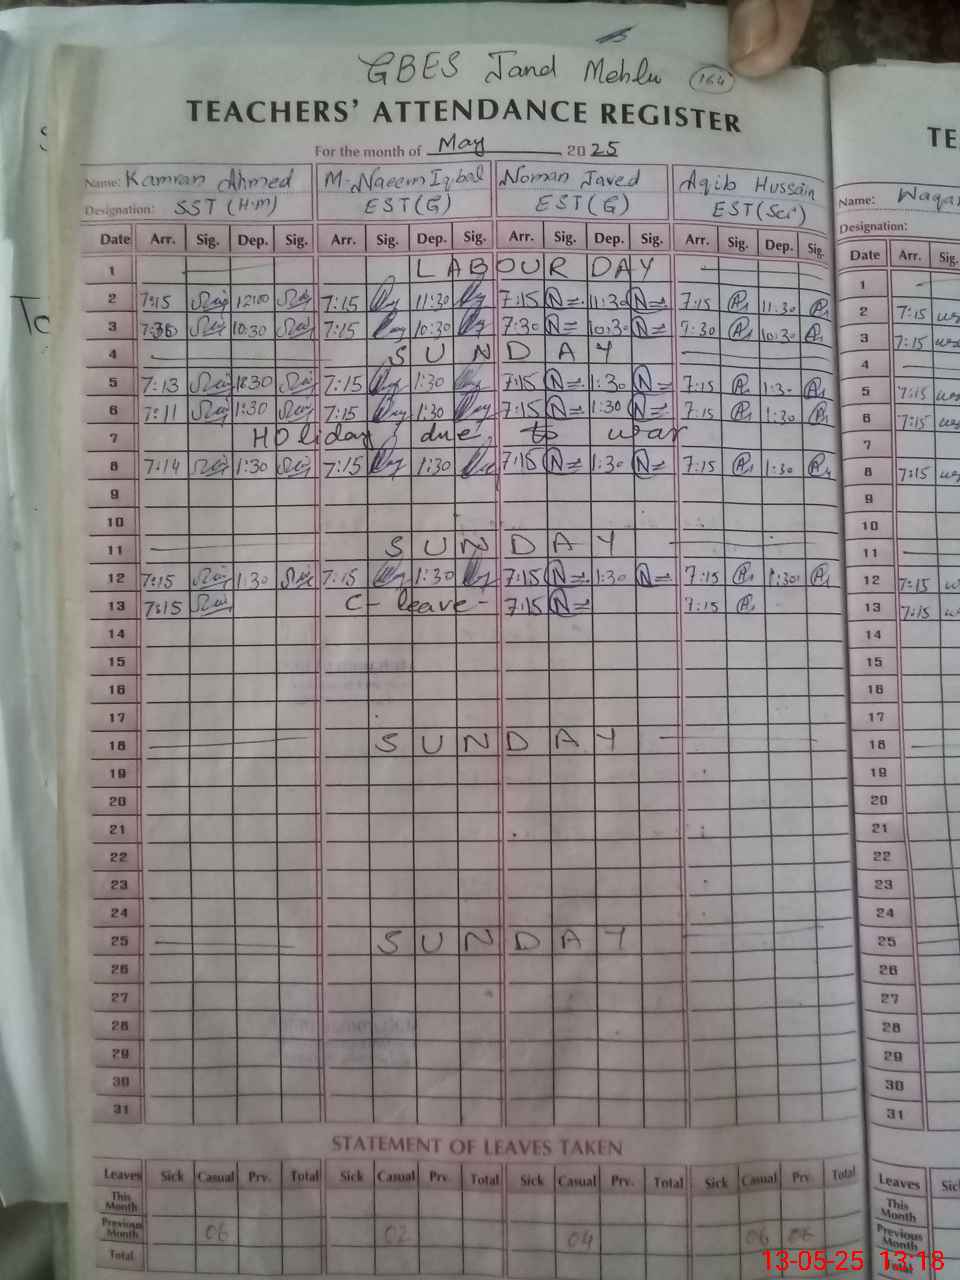 GBES Jand Mehlu (164)
TEACHERS' ATTENDANCE REGISTER
For the month of May 2025
Name: Kamran Ahmed M-Naeem Iqbal Noman Javed Aqib Hussain
Designation: SST (H.M) EST(G) EST(G) EST(Sci)
Date Arr. Sig. Dep. Sig. Arr. Sig. Dep. Sig. Arr. Sig. Dep. Sig. Arr. Sig. Dep. Sig.
1 LABOUR DAY
2 7:15 12:00 7:15 11:30 7:15 11:30 7:15 11:30
3 7:30 10:30 7:15 10:30 7:30 10:30 7:30 10:30
4 SUNDAY
5 7:13 7:15 1:30 7:15 1:30 7:15 1:30
6 7:11 1:30 7:15 1:30 7:15 1:30 7:15 1:30
7 Holiday due to war
8 7:14 1:30 7:15 1:30 7:15 1:30 7:15 1:30
9
10
11 SUNDAY
12 7:15 1:30 7:15 1:30 7:15 1:30 7:15 1:30
13 7:15 C-leave- 7:15 7:15
14
15
16
17
18 SUNDAY
19
20
21
22
23
24
25 SUNDAY
26
27
28
29
30
31
STATEMENT OF LEAVES TAKEN
Leaves Sick Casual Prv. Total Sick Casual Prv. Total Sick Casual Prv. Total Sick Casual Prv. Total
This Month
Previous Month 06 02 04 06 06
Total
TE
Name: Waqa
Designation:
Date Arr. Sig.
1
2 7:15
3 7:15
4
5 7:15
6 7:15
7
8 7:15
9
10
11
12 7:15
13 7:15
14
15
16
17
18
19
20
21
22
23
24
25
26
27
28
29
30
31
Leaves Sic
This Month
Previous Month
Total
13-05-25 13:18